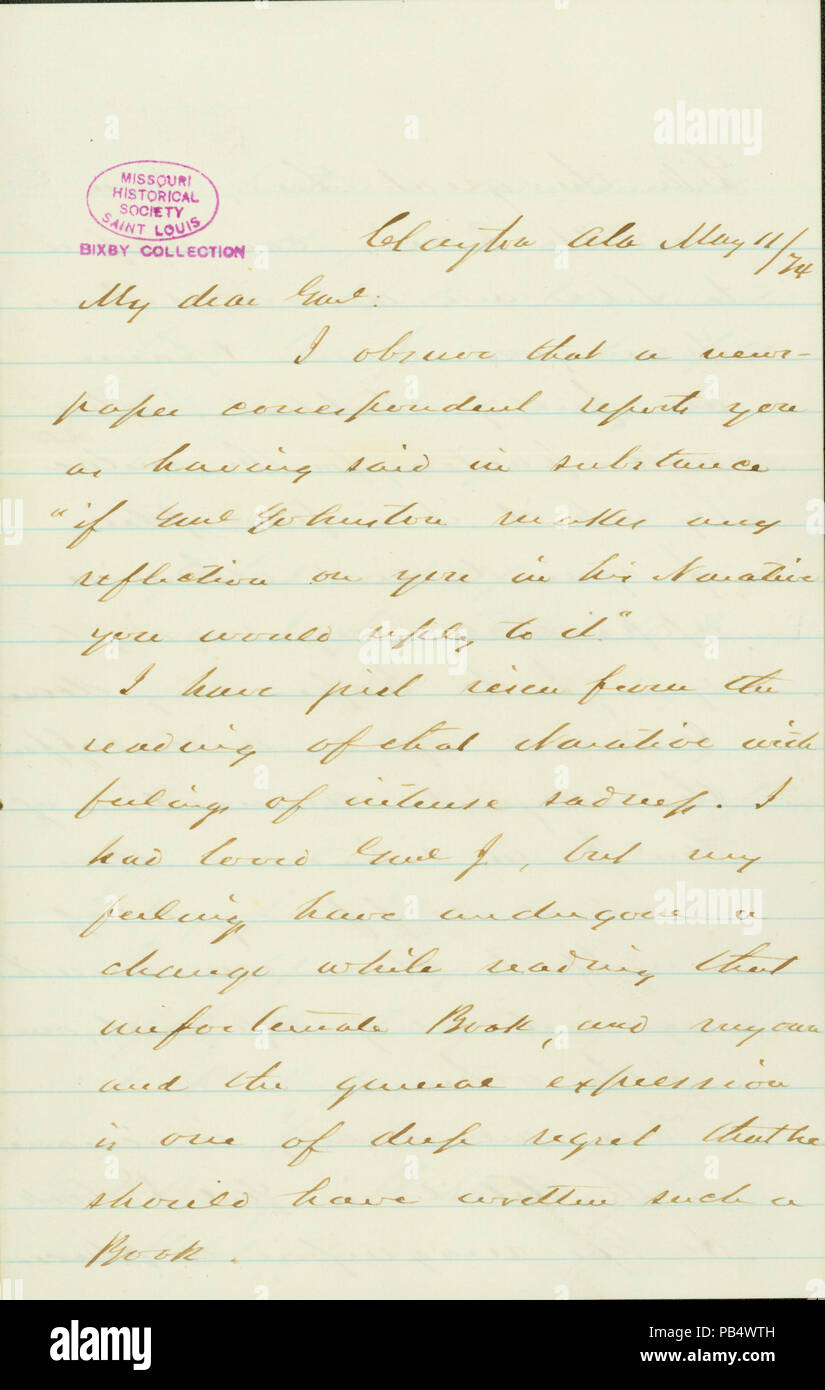 MISSOURI
HISTORICAL
SOCIETY
SAINT LOUIS
BIXBY COLLECTION
Clayton Ala May 11/74
My dear Genl:
I observe that a news-
paper correspondent reports you
as having said in substance
"if Genl Johnston makes any
reflection on you in his Narative
you would reply to it"
I have just risen from the
reading of that Narative with
feelings of intense sadness. I
had loved Genl J., but my
feelings have undergone a
change while reading that
unfortunate Book, and my own
and the general expression
is one of deep regret that he
should have written such a
Book.
alamy
Image ID: PB4WTH
www.alamy.com